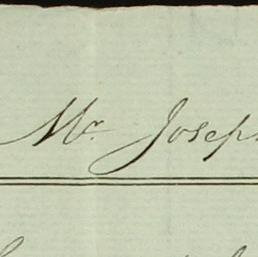 Mr. Josep